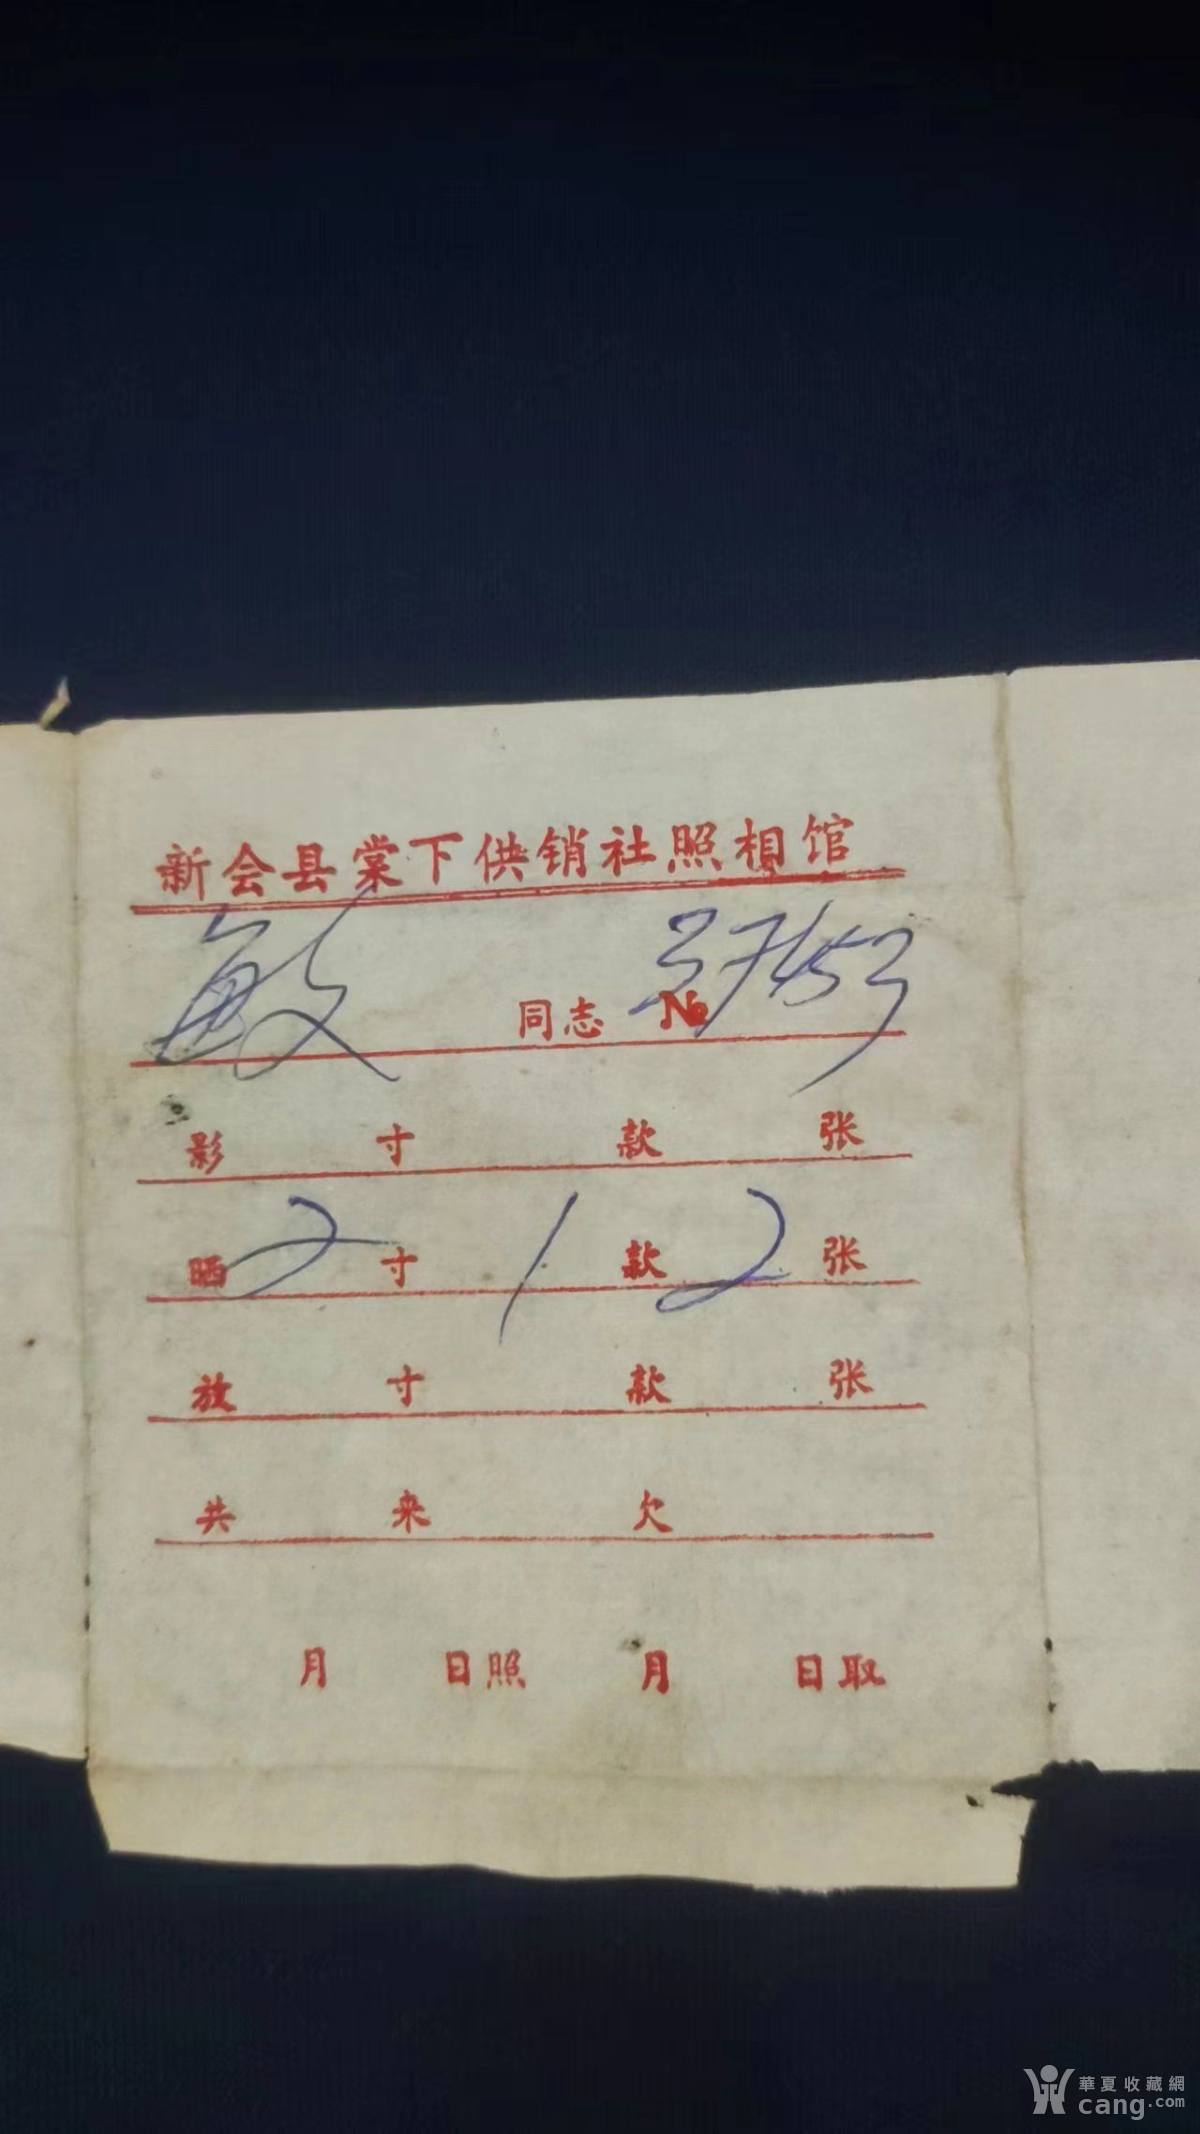 新会县棠下供销社照相馆
敏 同志 № 37453
影 寸 款 张
晒 2 寸 1 款 2 张
放 寸 款 张
共 来 欠
月 日照 月 日取
華夏收藏網
cang.com